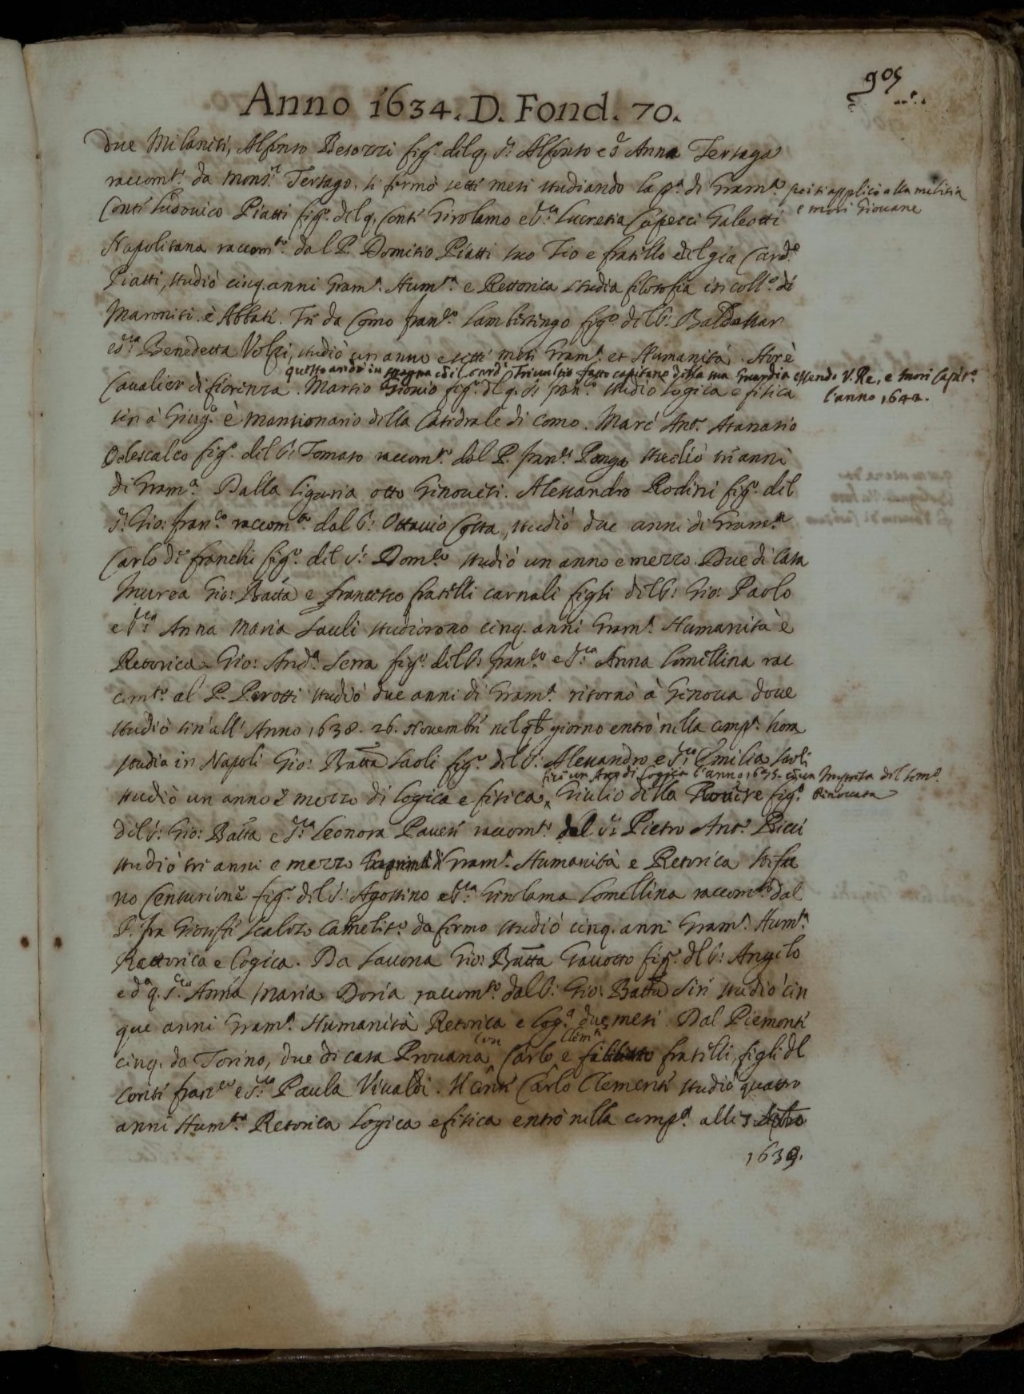 905
Anno 1634. D. Fond. 70.
Due Milanesi, Alfonso Besozzi fig.º del q. S.r Alfonso e S.ra Anna Terzaga
raccom.to da Mons.r Terzago. si fermò sette mesi studiando la p.a di Gram.a poi si applicò alla militia
e morì Giovane
Conte Ludovico Piatti fig.º del q. Conte Girolamo e S.ra Lucretia Capecci Galeotti
Napolitana raccom.to dal P. Domitio Piatti suo Tio e fratello del già Card.e
Piatti, studiò cinq. anni Gram.a Hum.tà e Rettorica studia filosofia in coll.º di
Maroniti è Abbate. Tre da Como fran.co Lambertingo fig.º del S.r Baldassar
e S.ra Benedetta Volpi, studiò un anno e sette mesi Gram.a et Humanità. Hor è
questo andò in Spagna cō il Card.e Triunltio fatto capitano della sua Guardia essendo V. Re, e morì Capit.º
l'anno 1642.
Cavalier di fiorenza. Martio Giovio fig.º del q. S.r fran.co studiò Logica e fisica
sin à Giug.º è mansionario della Catedrale di Como. Marc' Ant.º Atanasio
Odescalco fig.º del S.r Tomaso raccom.to dal P. fran.co studiò tre anni
di Gram.a Dalla Liguria otto Genovesi. Alessandro Rodini fig.º del
S.r Gio: fran.co raccom.to dal S.r Ottavio Costa, studiò due anni di Gram.a
Carlo de franchi fig.º del S.r Dom.co studiò un anno e mezzo. Due di Casa
Murea Gio: Batta e francesco fratelli carnali figli del S.r Gio: Paolo
e S.ra Anna Maria Sauli studiorono cinq. anni Gram.a Humanità è
Retorica. Gio: And.a Serra fig.º del S.r fran.co e S.ra Anna Lomellina rac
com.to al P. Perotti studiò due anni di Gram.a ritornò à Genova dove
studiò sin'all' Anno 1638. 26. Novembre nel qal giorno entrò nella comp.a hora
studia in Napoli Gio: Batta Saoli fig.º del S.r Alessandro e S.ra Emilia Saoli
fece un Atto di Logica l'anno 1635. cō un Impresa del Sem.º
Rinovata
studiò un anno è mezzo di Logica e fisica, Giulio della Rovere fig.º
del S.r Gio: Batta e S.ra Leonora Pavese raccom.to dal S.r Pietro Ant.º Ricci
studiò tre anni e mezzo Gram.a Humanità e Retorica Stefa
no Centurione fig.º del S.r Agostino e S.ra Girolama Lomellina raccom.to dal
P. fra Scalzo Camelit.º da fermo studiò cinq. anni Gram.a Hum.tà
Rettorica e Logica. Da Savona Gio: Batta Gavotto fig.º del S.r Angelo
e d.a q. S.ra Anna Maria Doria raccom.to dal S.r Gio: Batta Siri studiò cin
que anni Gram.a Humanità Retorica e Log.a due mesi Dal Piemonte
cinq. da Torino, due di casa Provana Con Carlo Clem.e e fratelli, figli del
Conte fran.co e S.ra Paula Vivaldi. Il Conte Carlo Clemente studiò quattro
anni Hum.tà Retorica Logica e fisica entrò nella comp.a alli 7
1639.